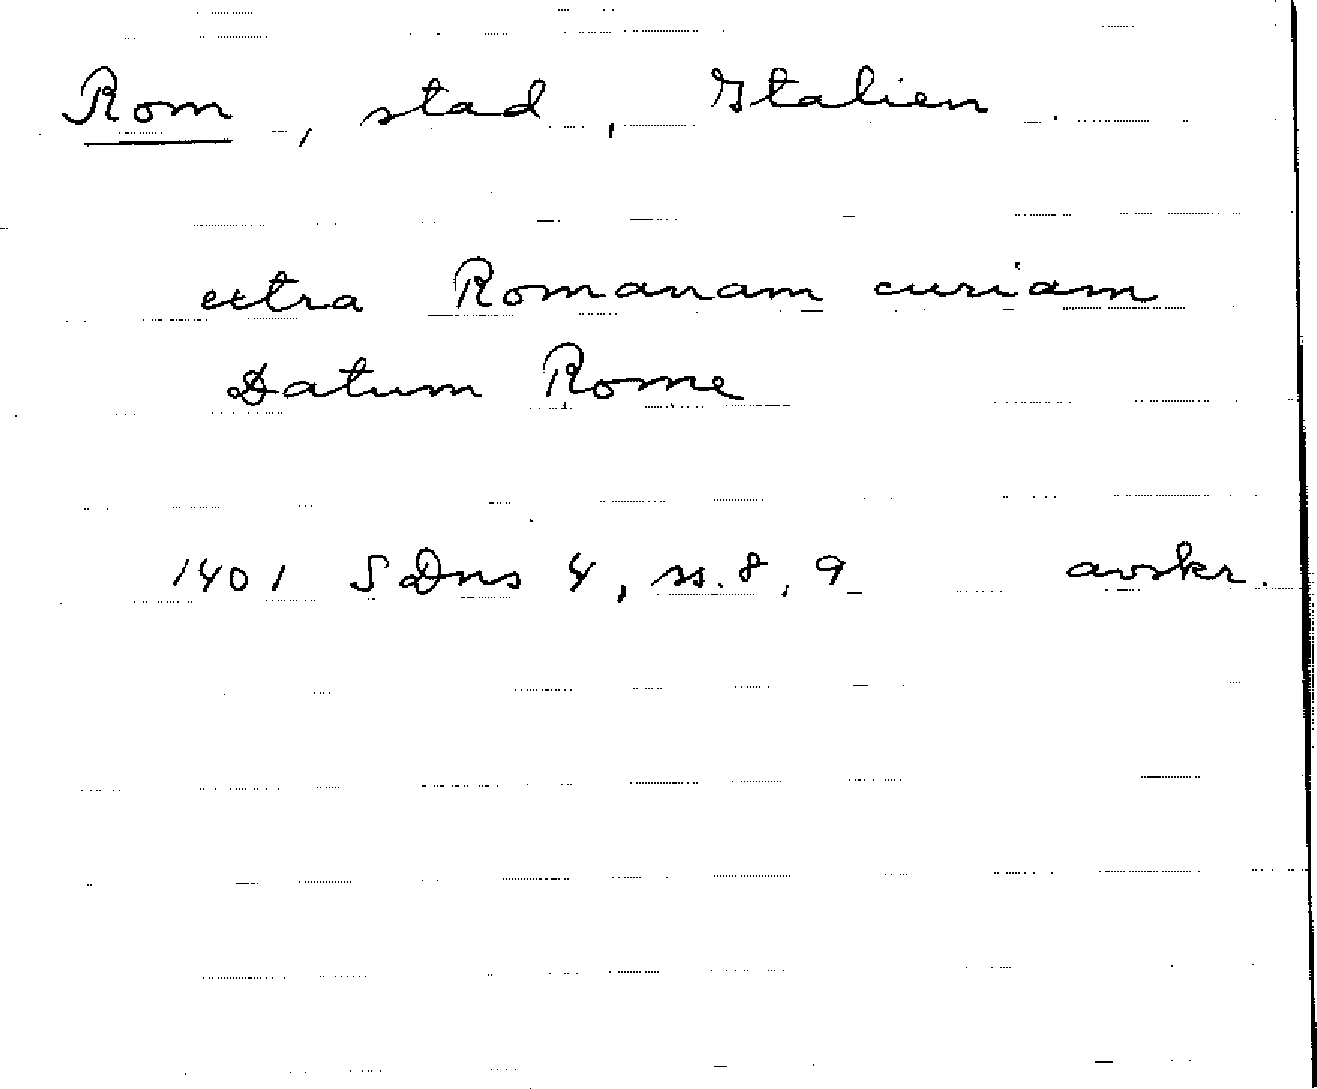 Rom, stad, Italien.
extra Romanam curiam
Datum Rome
1401 SDns 4, ss. 8, 9 avskr.